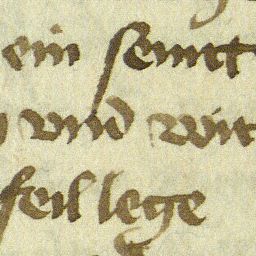 ein senntt
vnd wit
feil lege